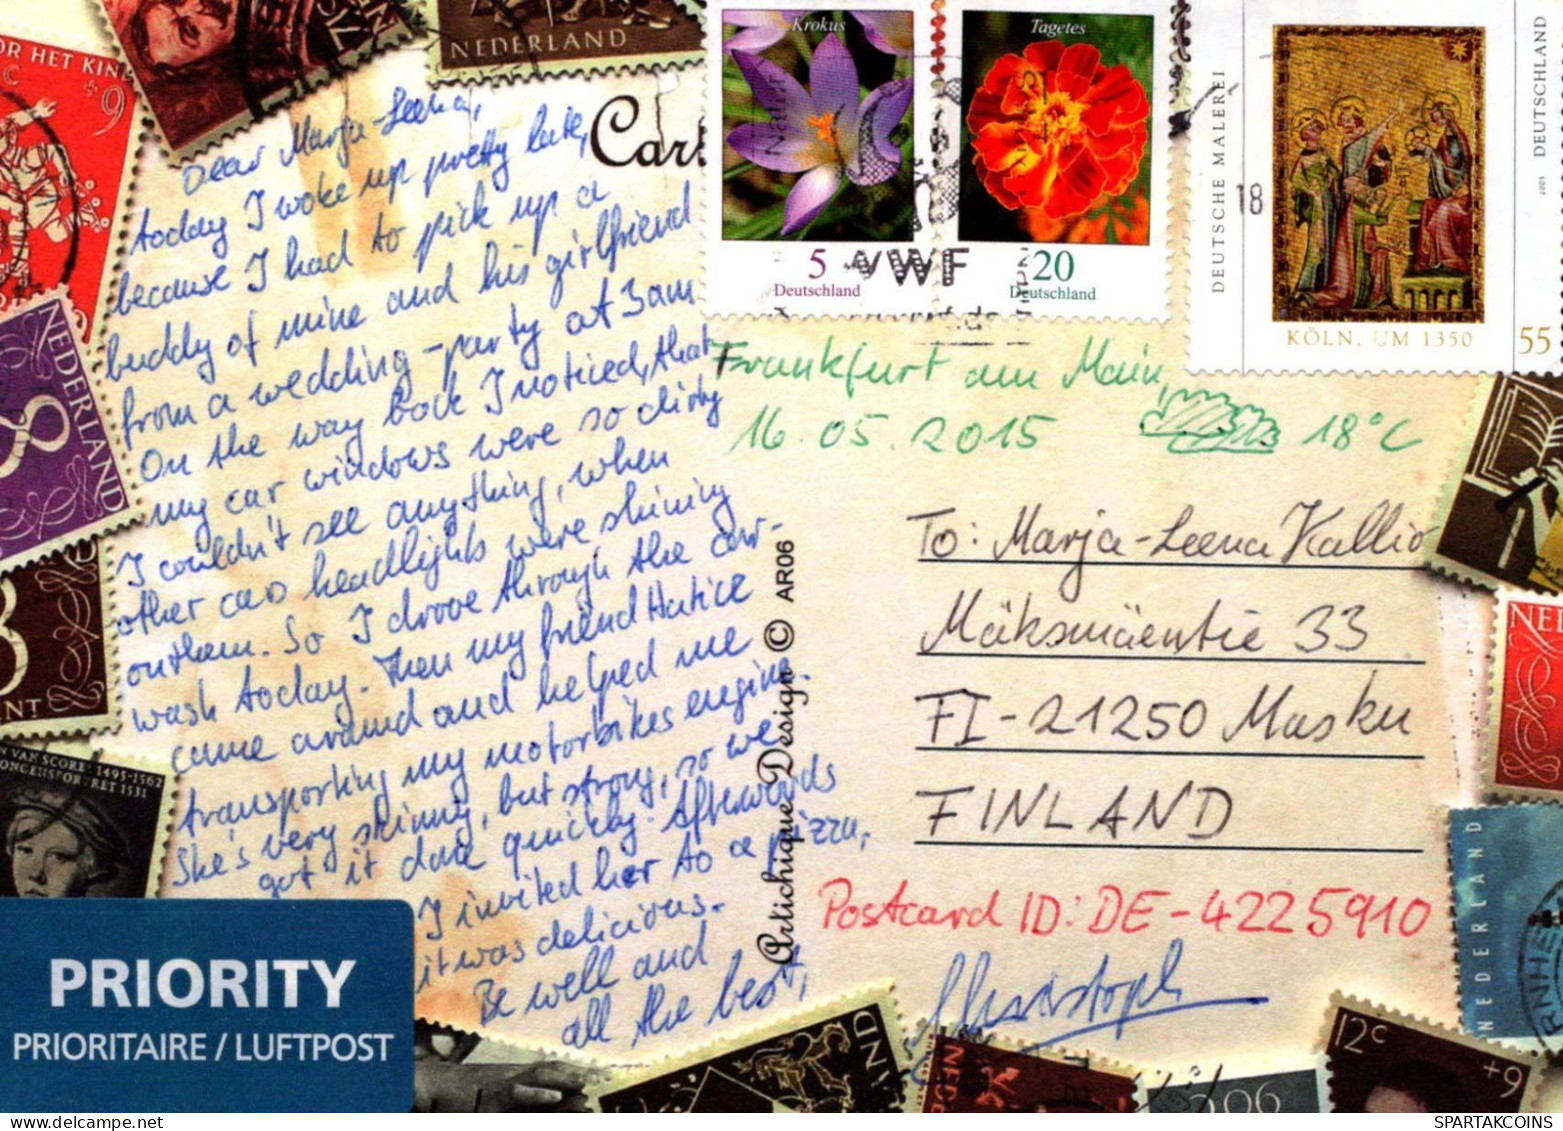 Dear Marja-Leena,
today I woke up pretty late,
because I had to pick up a
buddy of mine and his girlfriend
from a wedding-party at 3am
On the way back I noticed, that
my car windows were so dirty
I couldn't see anything, when
other cars headlights were shining
on them. So I drove through the car-
wash today. Then my friend Hatice
came around and helped me
transporting my motorbikes engine.
She's very skinny, but strong, so we
got it done quickly. Afterwards
I invited her to a pizza,
it was delicious.
Be well and
all the best,
Christoph
Frankfurt am Main,
16.05.2015 18°C
To: Marja-Leena Kallio
Mäksmäentie 33
FI-21250 Masku
FINLAND
Postcard ID: DE-4225910
Artichique Design © AR06
Car
Krokus
5
Deutschland
Tagetes
20
Deutschland
VWF
18
DEUTSCHE MALEREI
DEUTSCHLAND
KÖLN, UM 1350
55
NEDERLAND
OR HET KIN
c
+6
NEDERLAND
8
ENT
VAN SCOREL 1495-1562
1531
PRIORITY
PRIORITAIRE / LUFTPOST
NED
NEDERLAND
12c
+9
SPARTAKCOINS